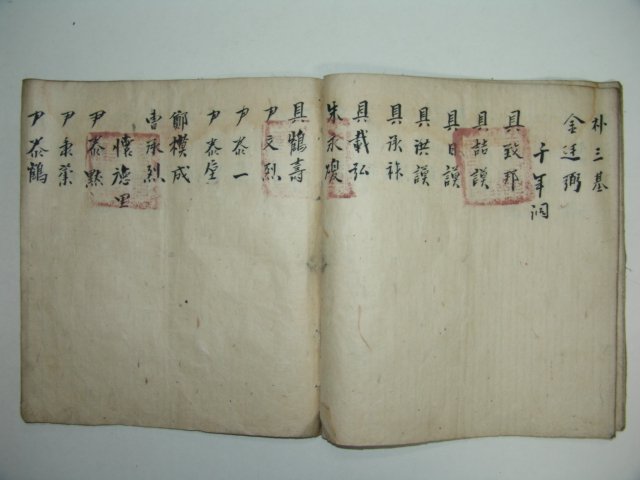 朴三基
金廷弼
千年洞
具致邦
具喆謨
具日謨
具洪謨
具永祚
具載弘
朱永煥
具鶴壽
尹文烈
尹泰一
尹泰宝
鄭機成
曺承烈
懷德里
尹泰點
尹秉榮
尹泰鶴